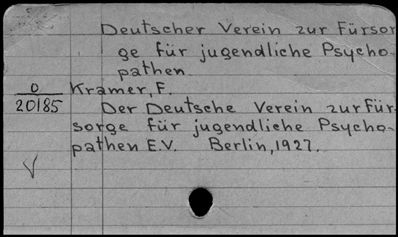 Deutscher Verein zur Fürsor
ge für jugendliche Psycho-
pathen.
O
20185
Kramer, F.
Der Deutsche Verein zur Für-
sorge für jugendliche Psycho-
pathen E.V. Berlin, 1927.